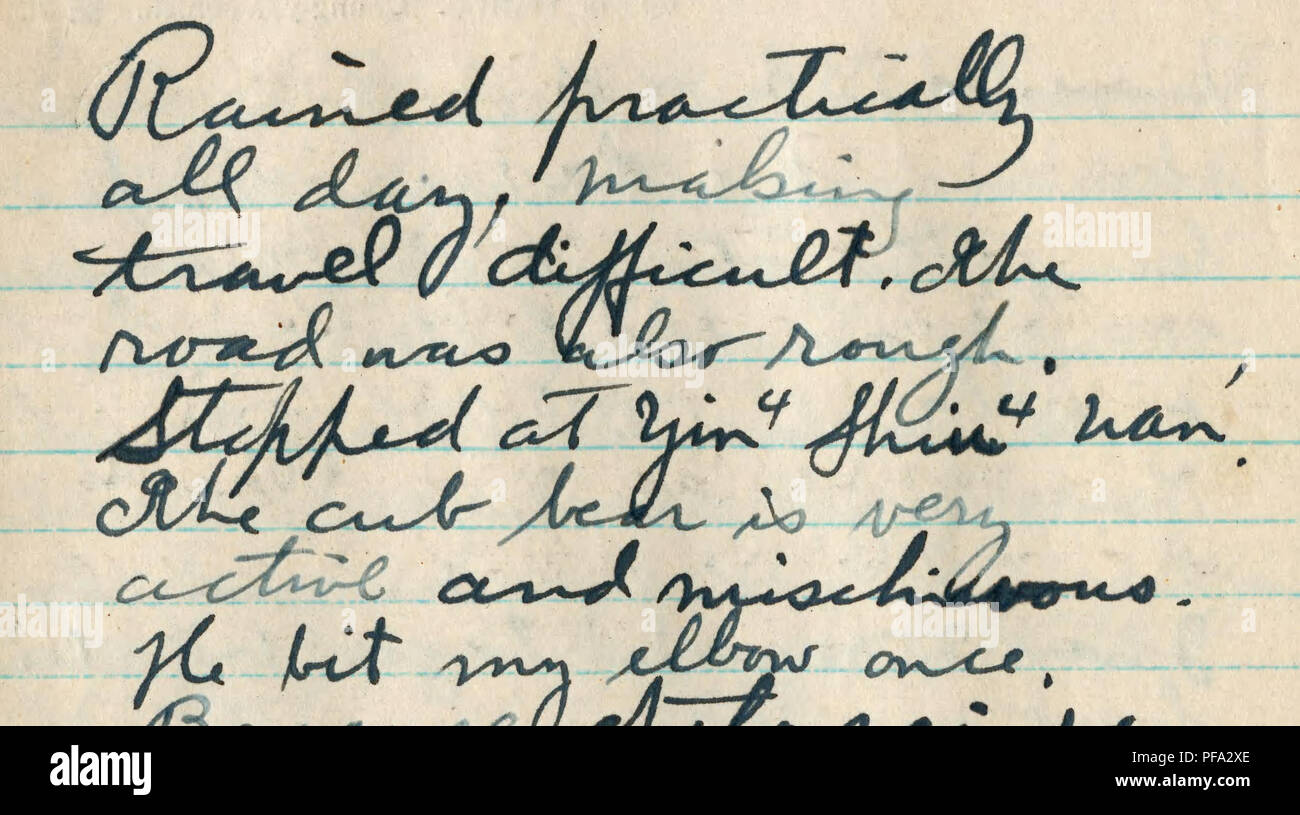 Rained practically
all day, making
travel difficult. The
road was also rough.
Stopped at Yin⁴ Shiu⁴ Wan.
The cub bear is very
active and mischievous.
He bit my elbow once.
alamy
Image ID: PFA2XE
www.alamy.com